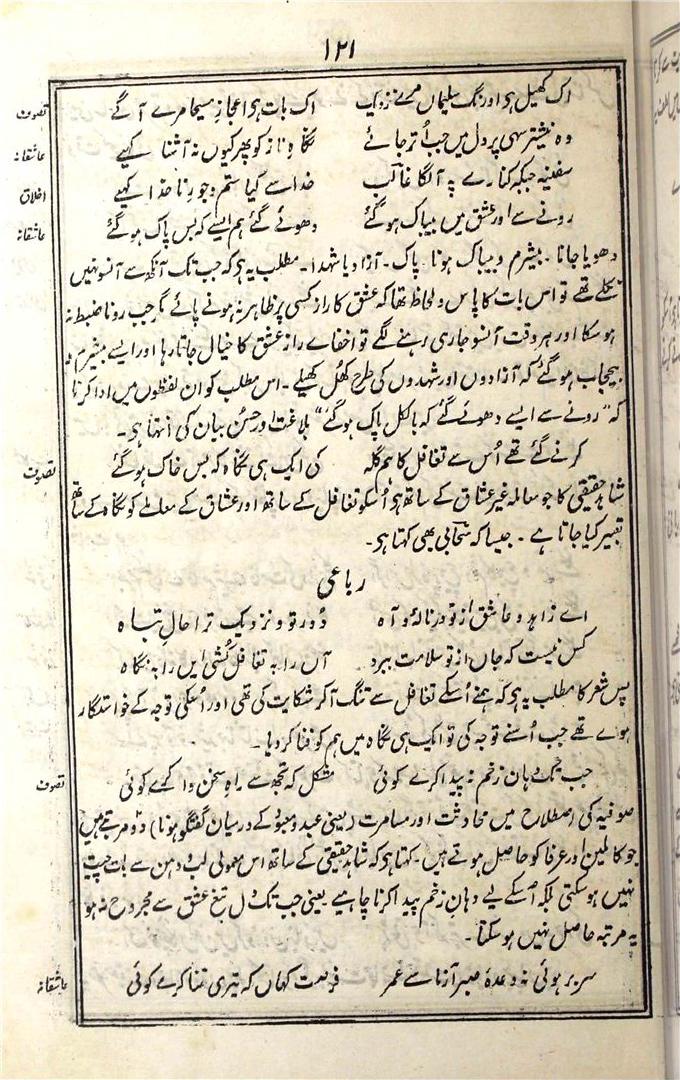 ۱۲۱
تصوف اک کھیل ہو اورنگ سلیماں مرے نزدیک اک بات ہو اعجازِ مسیحا مرے آگے
عاشقانہ وہ نیشتر سہی پر دل میں جب اُتر جائے نگاہِ ناز کو پھر کیوں نہ آشنا کہیے
اخلاق سفینہ جبکہ کنارے پہ آ لگا غالب خدا سے کیا ستم و جورِ ناخدا کہیے
عاشقانہ رونے سے اور عشق میں بیباک ہو گئے دھوئے گئے ہم ایسے کہ بس پاک ہو گئے
دھویا جانا ۔ بیشرم و بیباک ہونا ۔ پاک ۔ آزاد یا شہدا ۔ مطلب یہ ہی کہ جب تک آنکھ سے آنسو نہیں
نکلے تھے تو اس بات کا پاس و لحاظ تھا کہ عشق کا راز کسی پر ظاہر نہ ہونے پائے مگر جب رونا ضبط نہ
ہو سکا اور ہر وقت آنسو جاری رہنے لگے تو اخفاے رازِ عشق کا خیال جاتا رہا اور ایسے بیشرم و
بیحجاب ہو گئے کہ آزادوں اور شہدوں کی طرح کھُل کھیلے ۔ اس مطلب کو ان لفظوں میں ادا کرنا
کہ "رونے سے ایسے دھوئے گئے کہ بالکل پاک ہو گئے" بلاغت اور حسنِ بیان کی انتہا ہی ۔
تصوف کرنے گئے تھے اُس سے تغافل کا ہم گلہ کی ایک ہی نگاہ کہ بس خاک ہو گئے
شاہدِ حقیقی کا جو معاملہ غیر عشاق کے ساتھ ہو اُسکو تغافل کے ساتھ اور عشاق کے معاملے کو نگاہ کے ساتھ
تعبیر کیا جاتا ہے ۔ جیسا کہ سحابی بھی کہتا ہو ۔
رباعی
اے زاہد و عاشق از تو در نالہ و آہ دُورِ تو و نزدیک ترا حال تباہ
کس نیست کہ جاں از تو سلامت ببرد آں را بہ تغافل کُشی ایں را بہ نگاہ
پس شعر کا مطلب یہ ہی کہ ہمنے اُسکے تغافل سے تنگ آ کر شکایت کی تھی اور اُسکی توجہ کے خواستگار
ہوے تھے جب اُسنے توجہ کی تو ایک ہی نگاہ میں ہم کو فنا کر دیا ۔
تصوف جب تک دہانِ زخم نہ پیدا کرے کوئی مشکل کہ تجھ سے راہِ سخن وا کرے کوئی
صوفیہ کی اصطلاح میں محادثت اور مسامرت (یعنی عبد و معبود کے درمیان گفتگو ہونا) دو مرتبے ہیں
جو کاملین اور عرفا کو حاصل ہوتے ہیں ۔ کہتا ہو کہ شاہدِ حقیقی کے ساتھ اس معمولی لب و دہن سے بات چیت
نہیں ہو سکتی بلکہ اُسکے لیے دہانِ زخم پیدا کرنا چاہیے یعنی جب تک دل تیغِ عشق سے مجروح نہ ہو
یہ مرتبہ حاصل نہیں ہو سکتا ۔
عاشقانہ سر بر ہوئی نہ وعدۂ صبر آزما سے عمر فرصت کہاں کہ تیری تمنا کرے کوئی